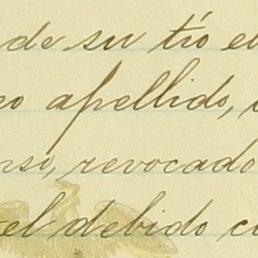 de su tío e
o apellido,
nso, revocado
el debido c